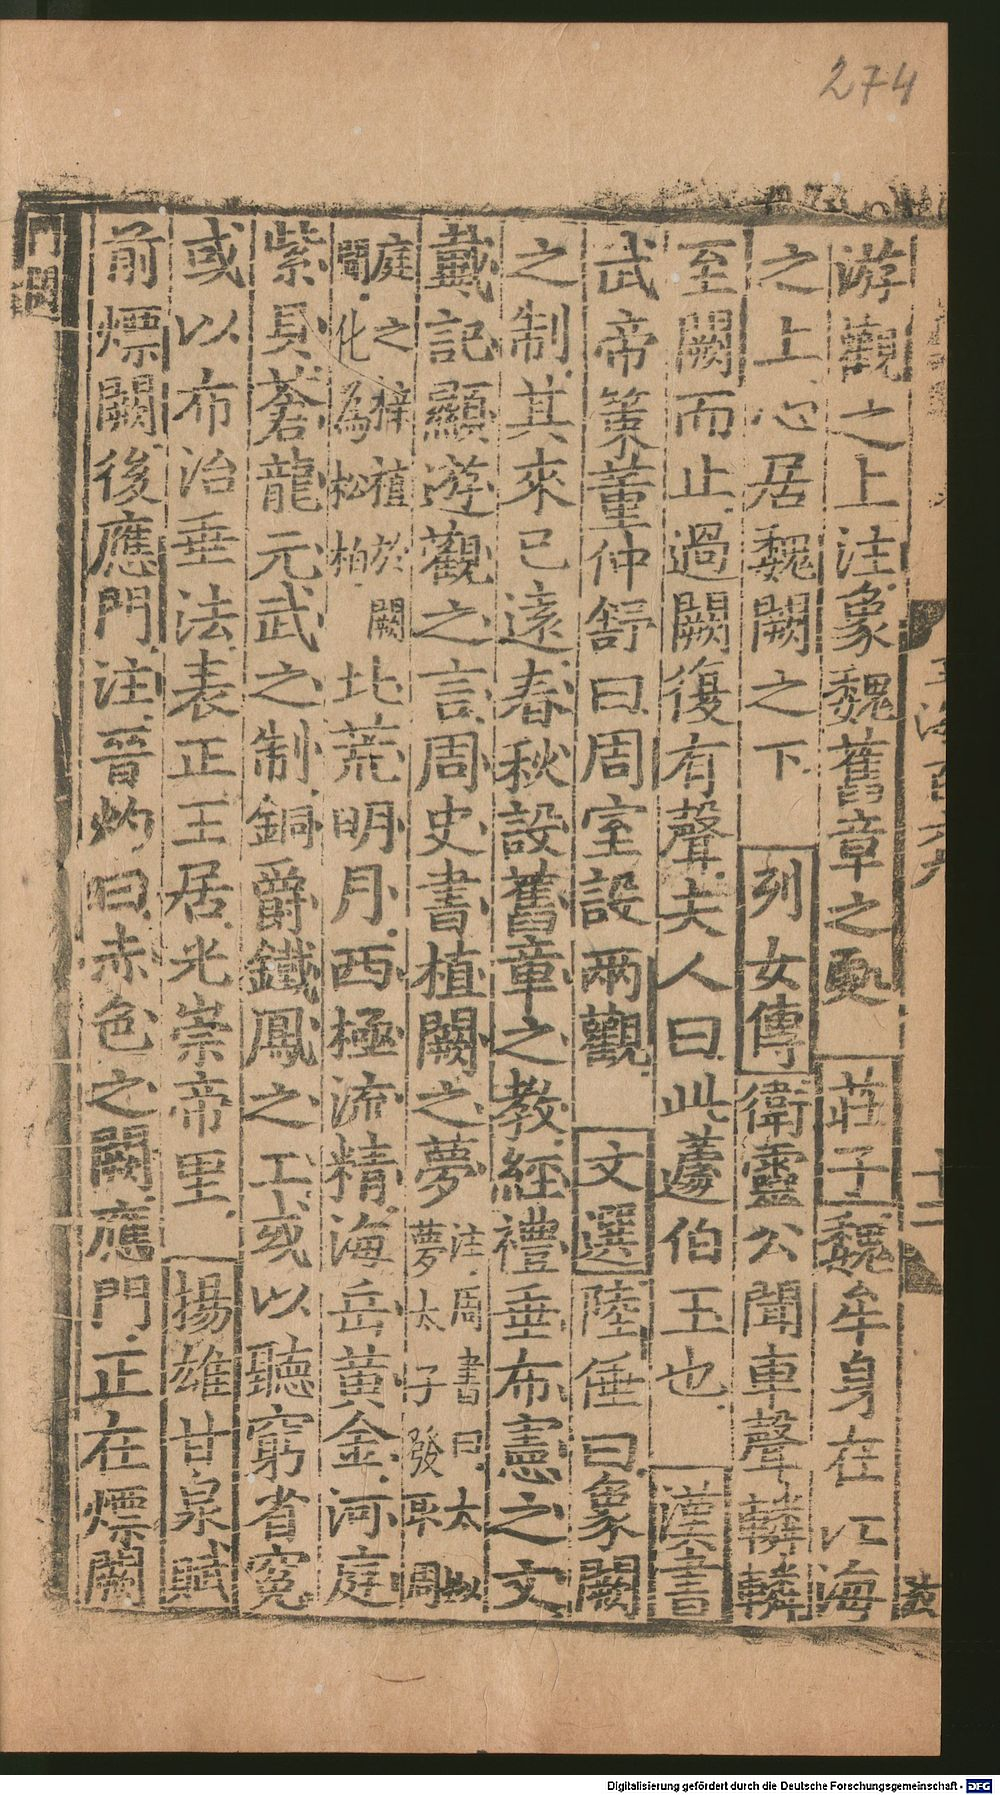 274
游觀之上注象魏舊章之處 莊子魏牟身在江海
之上心居魏闕之下 列女傳衛靈公聞車聲轔轔
至闕而止過闕復有聲夫人曰此蘧伯玉也 漢書
武帝策董仲舒曰周室設兩觀 文選陸倕曰象闕
之制其來已遠春秋設舊章之教經禮垂布憲之文
戴記顯遊觀之言周史書植闕之夢注周書曰太姒
夢太子發取周
庭之梓植於闕
間化為松柏北荒明月西極流精海岳黃金河庭
紫貝蒼龍元武之制銅爵鐵鳳之工或以聽窮省冤
或以布治垂法表正王居光崇帝里 揚雄甘泉賦
前熛闕後應門注晉灼曰赤色之闕應門正在熛闕
門闕
Digitalisierung gefördert durch die Deutsche Forschungsgemeinschaft - DFG